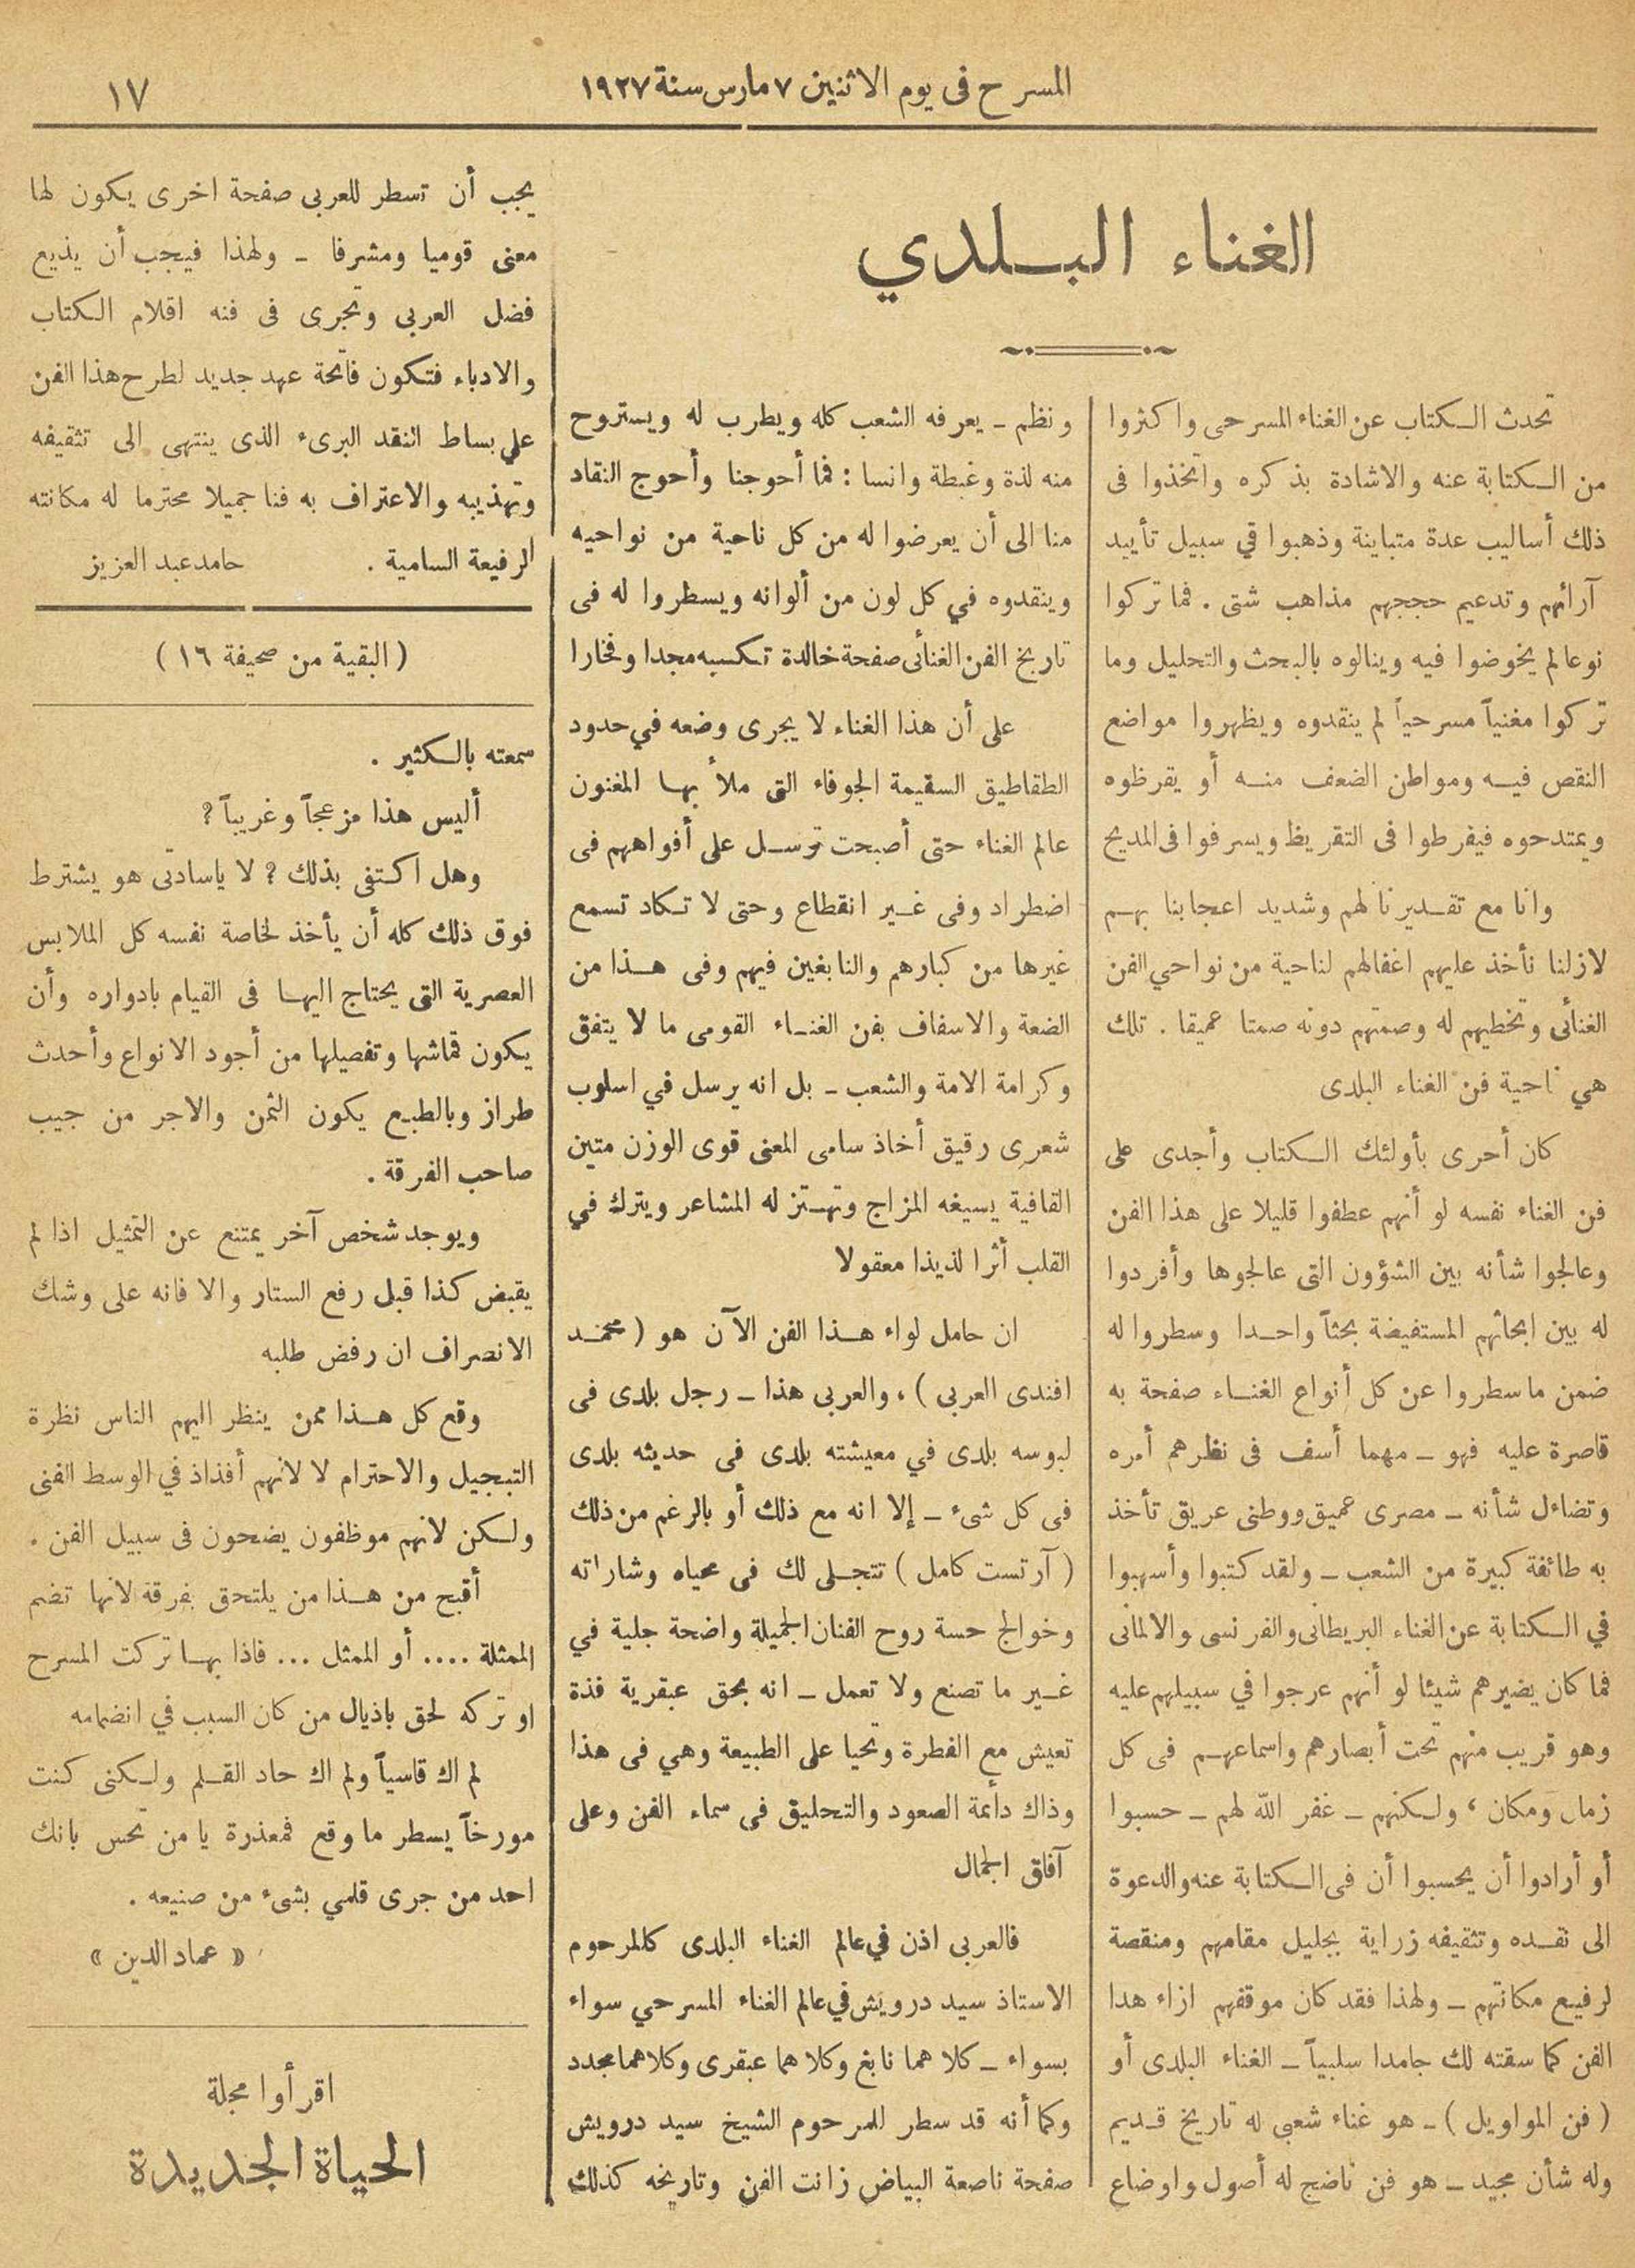 المسرح فى يوم الاثنين ٧ مارس سنة ١٩٢٧
١٧
الغناء البلدي
تحدث الكتاب عن الغناء المسرحى واكثروا
من الكتابة عنه والاشادة بذكره واتخذوا فى
ذلك أساليب عدة متباينة وذهبوا في سبيل تأييد
آرائهم وتدعيم حججهم مذاهب شتى . فما تركوا
نوعا لم يخوضوا فيه وينالوه بالبحث والتحليل وما
تركوا مغنياً مسرحياً لم ينقدوه ويظهروا مواضع
النقص فيه ومواطن الضعف منه أو يقرظوه
ويمتدحوه فيفرطوا فى التقريظ ويسرفوا فى المديح
وانا مع تقديرنا لهم وشديد اعجابنا بهم
لازلنا نأخذ عليهم اغفالهم لناحية من نواحي الفن
الغنائى وتخطيهم له وصمتهم دونه صمتا عميقا . تلك
هي ناحية فن الغناء البلدى
كان أحرى بأولئك الكتاب وأجدى على
فن الغناء نفسه لو أنهم عطفوا قليلا على هذا الفن
وعالجوا شأنه بين الشؤون التى عالجوها وأفردوا
له بين ابحاثهم المستفيضة بحثاً واحدا وسطروا له
ضمن ماسطروا عن كل أنواع الغناء صفحة به
قاصرة عليه فهو ـ مهما أسف فى نظرهم أمره
وتضاءل شأنه ـ مصرى عميق ووطنى عريق تأخذ
به طائفة كبيرة من الشعب ـ ولقد كتبوا وأسهبوا
في الكتابة عن الغناء البريطانى والفرنسى والالمانى
فما كان يضيرهم شيئا لو أنهم عرجوا في سبيلهم عليه
وهو قريب منهم تحت أبصارهم واسماعهم فى كل
زمان ومكان ، ولكنهم ـ غفر الله لهم ـ حسبوا
أو أرادوا أن يحسبوا أن فى الكتابة عنه والدعوة
الى نقده وتثقيفه زراية بجليل مقامهم ومنقصة
لرفيع مكانتهم ـ ولهذا فقد كان موقفهم ازاء هدا
الفن كما سقته لك جامدا سلبياً ـ الغناء البلدى أو
( فن المواويل ) ـ هو غناء شعبى له تاريخ قديم
وله شأن مجيد ـ هو فن ناضج له أصول واوضاع
ونظم ـ يعرفه الشعب كله ويطرب له ويستروح
منه لذة وغبطة وانسا : فما أحوجنا وأحوج النقاد
منا الى أن يعرضوا له من كل ناحية من نواحيه
وينقدوه في كل لون من ألوانه ويسطروا له فى
تاريخ الفن الغنائى صفحة خالدة تكسبه مجدا وفخارا
على أن هذا الغناء لا يجرى وضعه في حدود
الطقاطيق السقيمة الجوفاء التى ملأ بها المغنون
عالم الغناء حتى أصبحت ترسل على أفواههم فى
اضطراد وفى غير انقطاع وحتى لا تكاد تسمع
غيرها من كبارهم والنابغين فيهم وفى هذا من
الضعة والاسفاف بفن الغناء القومى ما لا يتفق
وكرامة الامة والشعب ـ بل انه يرسل في اسلوب
شعرى رقيق أخاذ سامى المعنى قوى الوزن متين
القافية يسيغه المزاج وتهتز له المشاعر ويترك في
القلب أثرا لذيذا معقولا
ان حامل لواء هذا الفن الآن هو ( محمد
افندى العربى ) ، والعربى هذا ـ رجل بلدى فى
لبوسه بلدى في معيشته بلدى فى حديثه بلدى
فى كل شىء ـ إلا انه مع ذلك أو بالرغم من ذلك
( آرتست كامل ) تتجلى لك فى محياه وشاراته
وخوالج حسة روح الفنان الجميلة واضحة جلية في
غير ما تصنع ولا تعمل ـ انه بحق عبقرية فذة
تعيش مع الفطرة وتحيا على الطبيعة وهي فى هذا
وذاك دائمة الصعود والتحليق فى سماء الفن وعلى
آفاق الجمال
فالعربى اذن في عالم الغناء البلدى كالمرحوم
الاستاذ سيد درويش في عالم الغناء المسرحي سواء
بسواء ـ كلاهما نابغ وكلاهما عبقرى وكلاهما مجدد
وكما أنه قد سطر للمرحوم الشيخ سيد درويش
صفحة ناصعة البياض زانت الفن وتاريخه كذلك
يجب أن تسطر للعربى صفحة اخرى يكون لها
معنى قوميا ومشرفا ـ ولهذا فيجب أن يذيع
فضل العربى وتجرى فى فنه اقلام الكتاب
والادباء فتكون فاتحة عهد جديد لطرح هذا الفن
علي بساط النقد البرىء الذى ينتهى الى تثقيفه
وتهذيبه والاعتراف به فنا جميلا محترما له مكانته
الرفيعة السامية . حامد عبد العزيز
( البقية من صحيفة ١٦ )
سمعته بالكثير .
أليس هذا مزعجاً وغريباً ؟
وهل اكتفى بذلك ؟ لا ياسادتى هو يشترط
فوق ذلك كله أن يأخذ لخاصة نفسه كل الملابس
العصرية التى يحتاج اليها فى القيام بادواره وأن
يكون قماشها وتفصيلها من أجود الانواع وأحدث
طراز وبالطبع يكون الثمن والاجر من جيب
صاحب الفرقة .
ويوجد شخص آخر يمتنع عن التمثيل اذا لم
يقبض كذا قبل رفع الستار والا فانه على وشك
الانصراف ان رفض طلبه
وقع كل هذا ممن ينظر اليهم الناس نظرة
التبجيل والاحترام لا لانهم أفذاذ في الوسط الفنى
ولكن لانهم موظفون يضحون فى سبيل الفن .
أقبح من هذا من يلتحق بفرقة لانها تضم
الممثلة .... أو الممثل ... فاذا بها تركت المسرح
او تركه لحق باذيال من كان السبب في انضمامه
لم اك قاسياً ولم اك حاد القلم ولكنى كنت
مورخاً يسطر ما وقع فمعذرة يا من تحس بانك
احد من جرى قلمي بشىء من صنيعه .
« عماد الدين »
اقرأوا مجلة
الحياة الجديدة